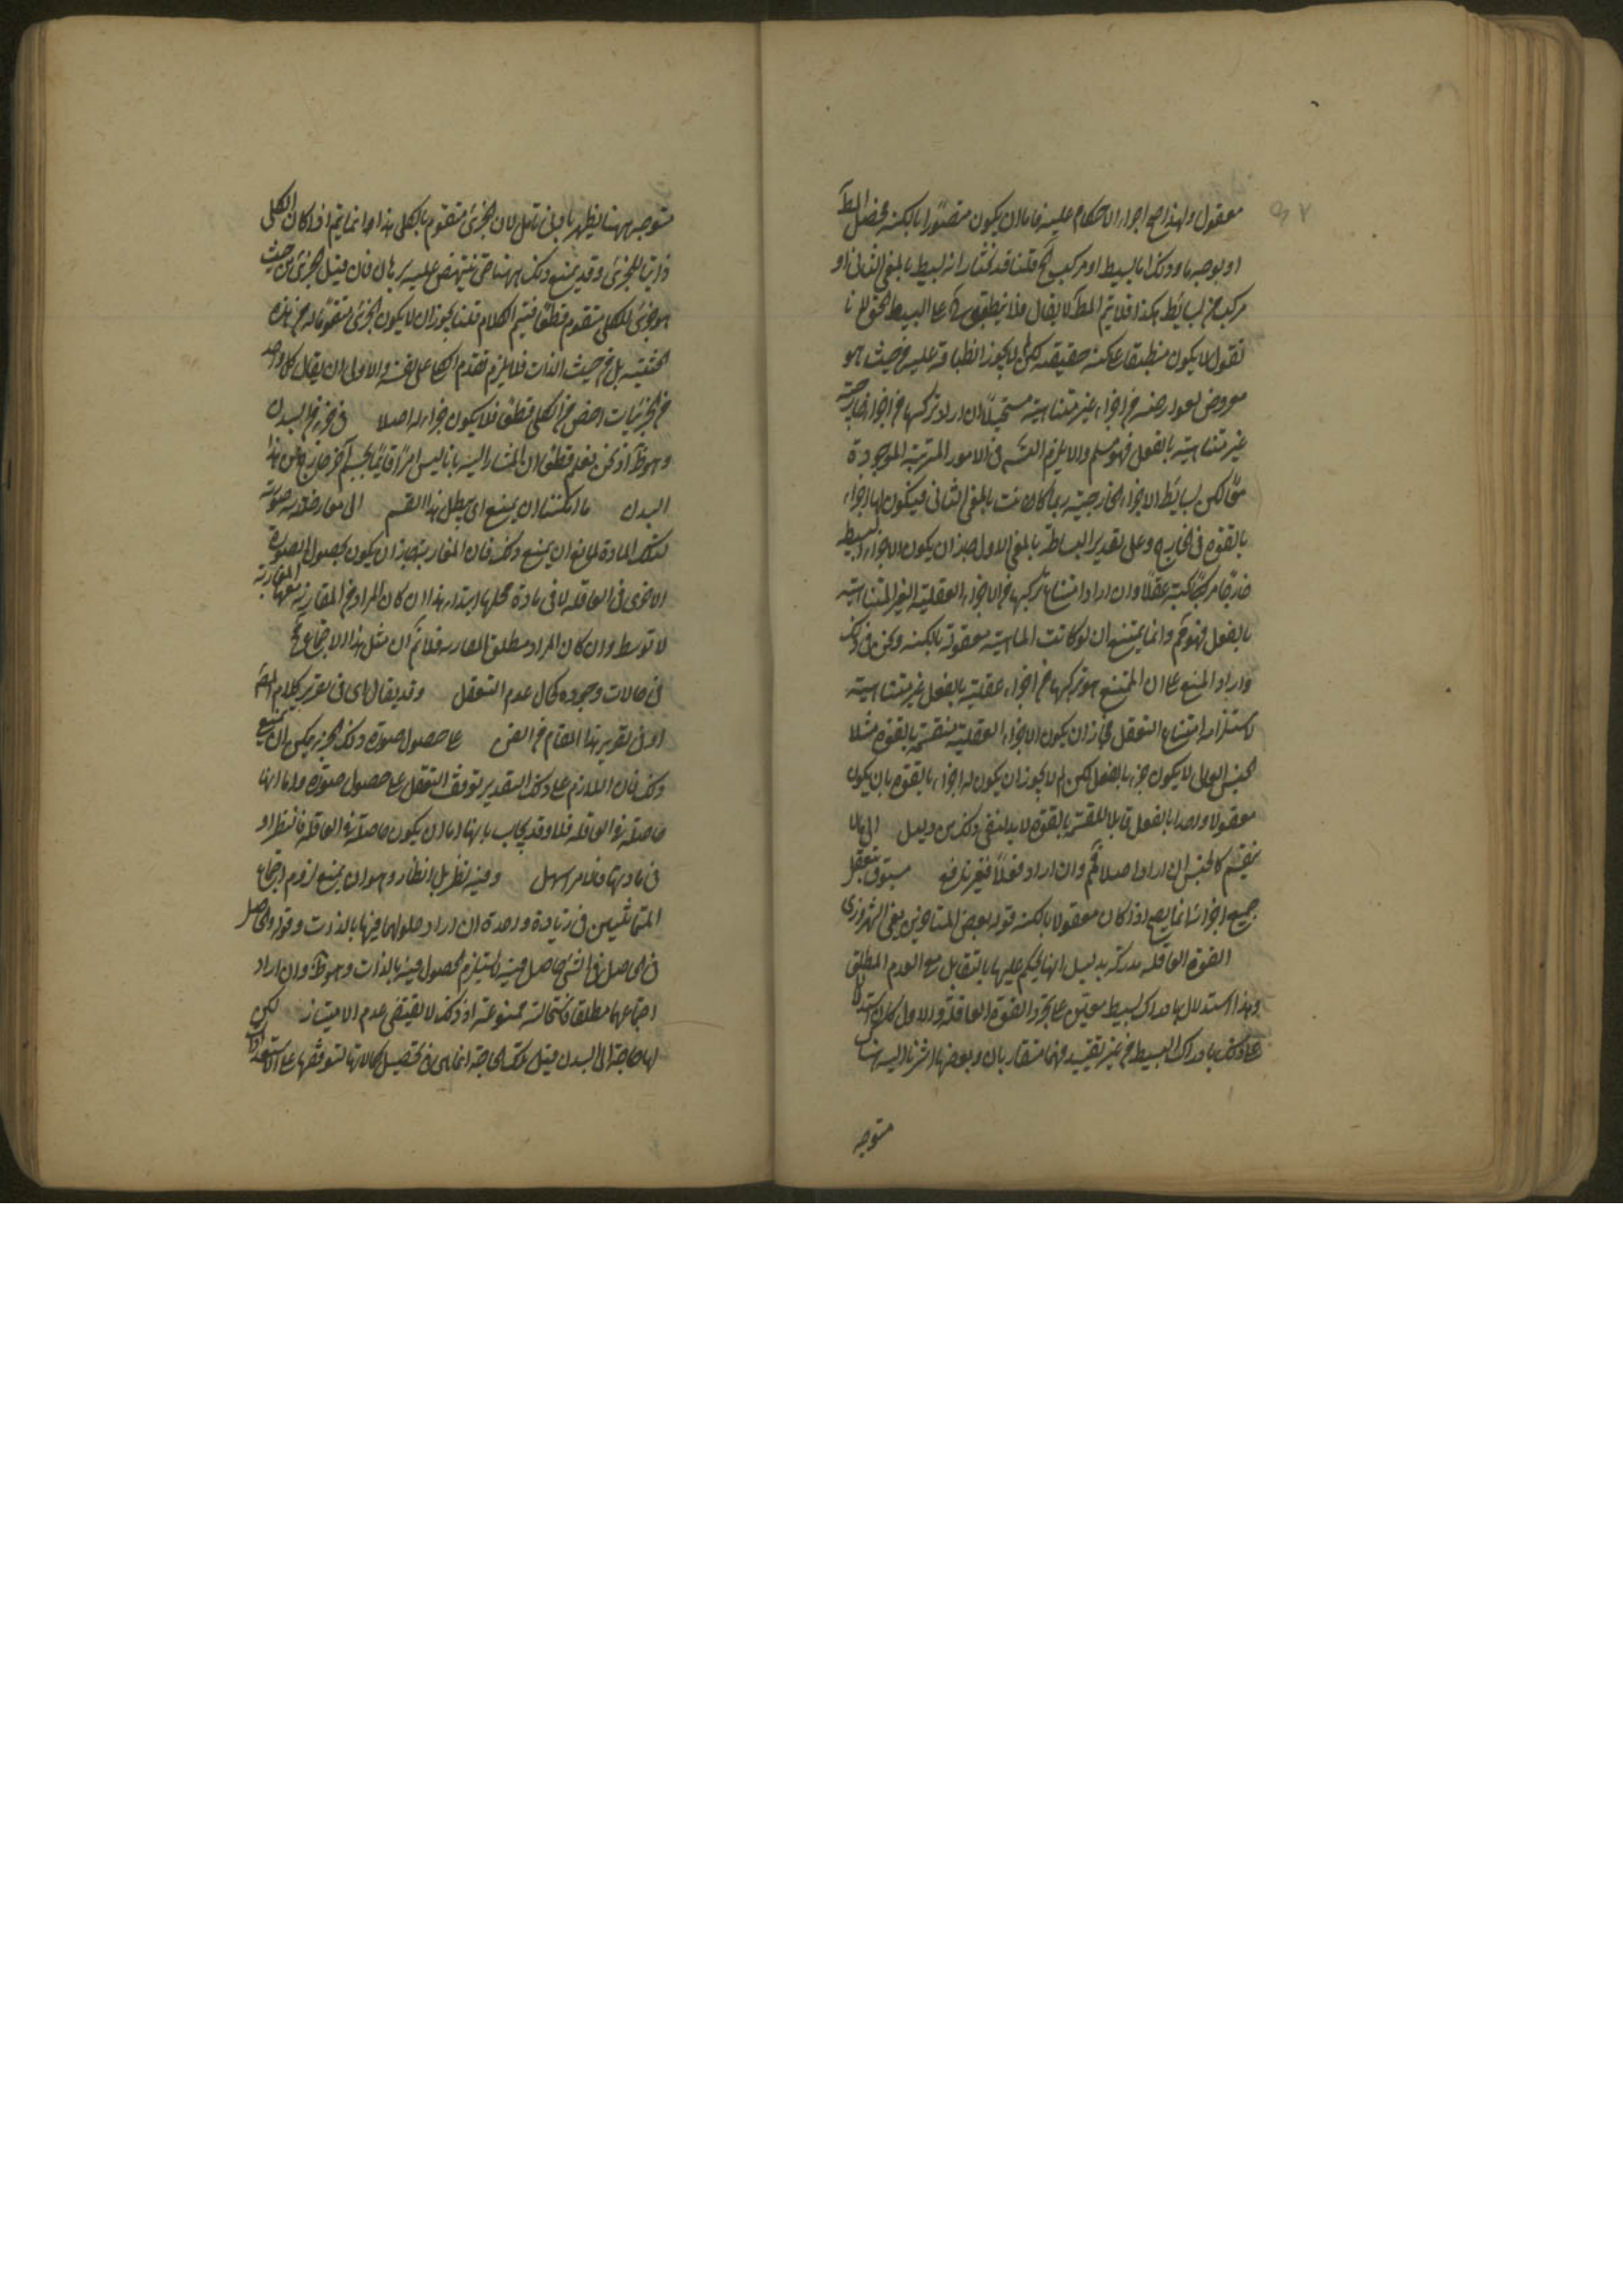 معقول ولهذا صح اجراء الاحكام عليه فاما ان يكون متصورا بالكنه فحصل المط
او بوجه ما وذلك اما بسيط او مركب الخ قلنا قد نختار انه بسيط بالمعنى الثانى او
مركب من بسائط هكذا فلا يتم المط لا يقال فلا ينطبق على البسيط الحق لانا
نقول لا يكون منطبقا على كنه حقيقته لكن لا يجوز انطباقه عليه من حيث هو
معروض لعوارضه من اجزاء غير متناهية مستحيلا ان اراد تركبها من اجزاء خارجية
غير متناهية بالفعل فهو مسلم والا يلزم التسـ فى الامور المترتبة الموجودة
معا لكن بسائط الاجزاء الخارجية ربما كانت بالمعنى الثانى فيكون لها اجزاء
بالقوة فى الخارج وعلى تقدير البساطة بالمعنى الاول جاز ان يكون الاجزاء البسيطة
خارجا مركبة عقلا وان اراد امتناع تركبها من الاجزاء العقلية الغير المتناهية
بالفعل فهو مم وانما يمتنع ان لو كانت الماهية معقولة بالكنه ونحن فى ذلك
وارد المنع على ان الممتنع هو تركبها من اجزاء عقلية بالفعل غير متناهية
لاستلزامه امتناع التعقل فجاز ان يكون الاجزاء العقلية منقسمة بالقوة مثلا
الجنس العالى لا يكون جزء بالفعل لكن لم لا يجوز ان يكون له اجزاء بالقوة بان يكون
معقولا واحدا بالفعل قابلا للقسمة بالقوة لا بد لنفى ذلك من دليل الى ما لا
ينقسم كالجنس ان اراد اصلا فمم وان اراد فعلا فغير نافع مسبوق بتعقل
جميع اجزائه انما يصح اذا كان معقولا بالكنه قوله بعض المتاخرين يعنى الشهرزورى
القوة العاقلة مدركة بدليل انها يحكم عليها بالتقابل مع العدم المطلق
وهذا استدلال بادراك بسيط معين على تجرد القوة العاقلة والاول كان استدلالا
على ذلك بادراك البسيط من غير تقييد فهما متقاربان وبعض ما اشرنا اليه هناك
متوجه
متوجه ههنا يظهر بادنى تامل لان الجزئى متقوم بالكلى هذا انما يتم اذا كان الكلى
ذاتيا للجزئى وقد يمنع ذلك ههنا حتى ينتهض عليه برهان فان قيل الجزئى من حيث
هو جزئى للكلى متقوم قطعا فيتم الكلام قلنا يجوز ان لا يكون الجزئى متقوما به من هذه
الحيثية بل من حيث الذات فلا يلزم تقدم الكلى على نفسه والاولى ان يقال كل واحد
من الجزئيات اخص من الكلى قطعا فلا يكون جزءا له اصلا فى جزء من البدن
وهو ظ اذ نحن نعلم قطعا ان المشار اليه بانا ليس امرا قائما بجسم آخر خارج عن هذا
البدن ما امكننا ان يمنع اى يبطل هذا القسم الى معارضة صورية
لتلك المادة لمانع ان يمنع ذلك فان المقارنة جاز ان يكون بحصول الصورة
الاخرى فى العاقلة لا فى مادة محلها ابتداء هذا ان كان المراد من المقارنة معها المقارنة
لا توسط وان كان المراد مطلق المقارنة فلا نم ان مثل هذا الاجتماع مح
فى حالات وجوده كحال عدم التعقل وقد يقال اى فى تقرير كلام المصـ
او فى تقرير هذا المقام من الفن على حصول صورة ذلك الجزء يمكن ان يمنع
ذلك فان اللازم على ذلك التقدير توقف التعقل على حصول صورة واما انها
حاصلة فى العاقلة فلا وقد يجاب بانها اما ان يكون حاصلة فى العاقلة فالنظر او
فى مادتها فالامر اسهل وفيه نظر بل انظار وهو ان يمنع لزوم اجتماع
المتماثلين فى مادة واحدة ان اراد حلولهما فيها بالذات وقوله والحاصل
فى الحاصل فى الشئ حاصل فيه لا يستلزم الحصول فيه بالذات وهو ظ وان اراد
اجتماعهما مطلقا فاستحالته ممنوعة اذ ذلك لا يقتضى عدم الامتياز لكن
لها حاجة الى البدن قيل تلك الحاجة انما هى فى تحصيل كمالاتها لتوقفها على الاستعدادات